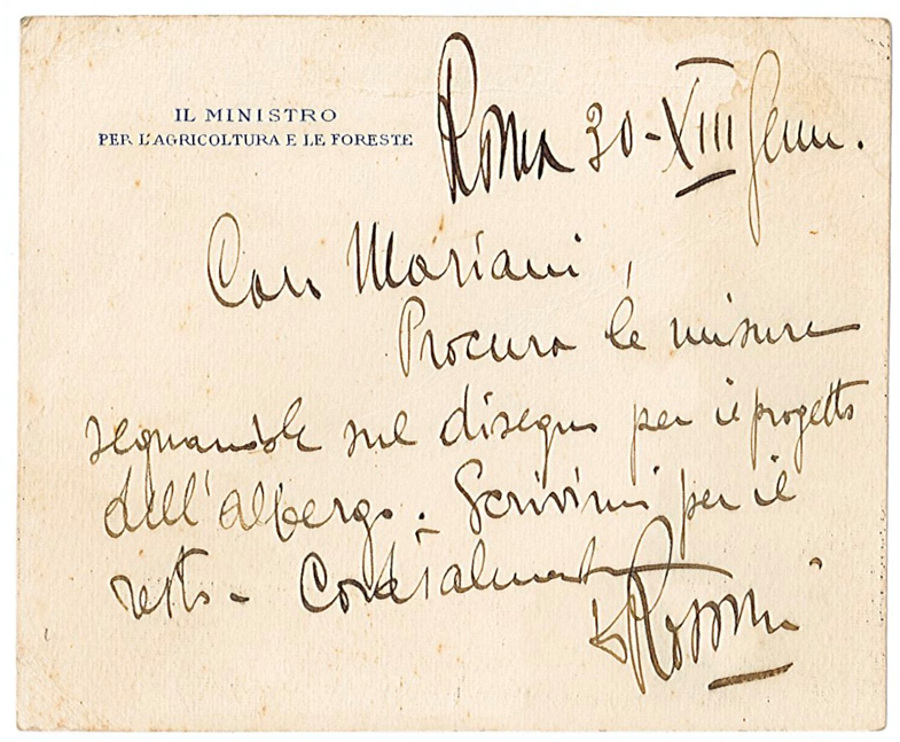 IL MINISTRO
PER L'AGRICOLTURA E LE FORESTE
Roma 30-XIII Genn.
Caro Mariani,
Procura le misure
segnandole sul disegno per il progetto
dell'albergo. Scrivimi per il
resto - Cordialmente
Rossoni